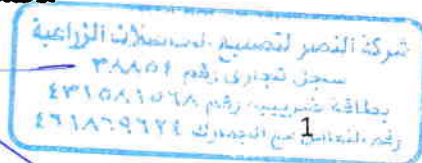 شركة النصر لتصنيع الحاصلات الزراعية
سجل تجارى رقم ٣٨٨٥٤
بطاقة ضريبية رقم ٤٣١٥٨١٥٦٨
رقم التعامل مع الجمارك ٤٦١٨٦٩٦٢٤
1